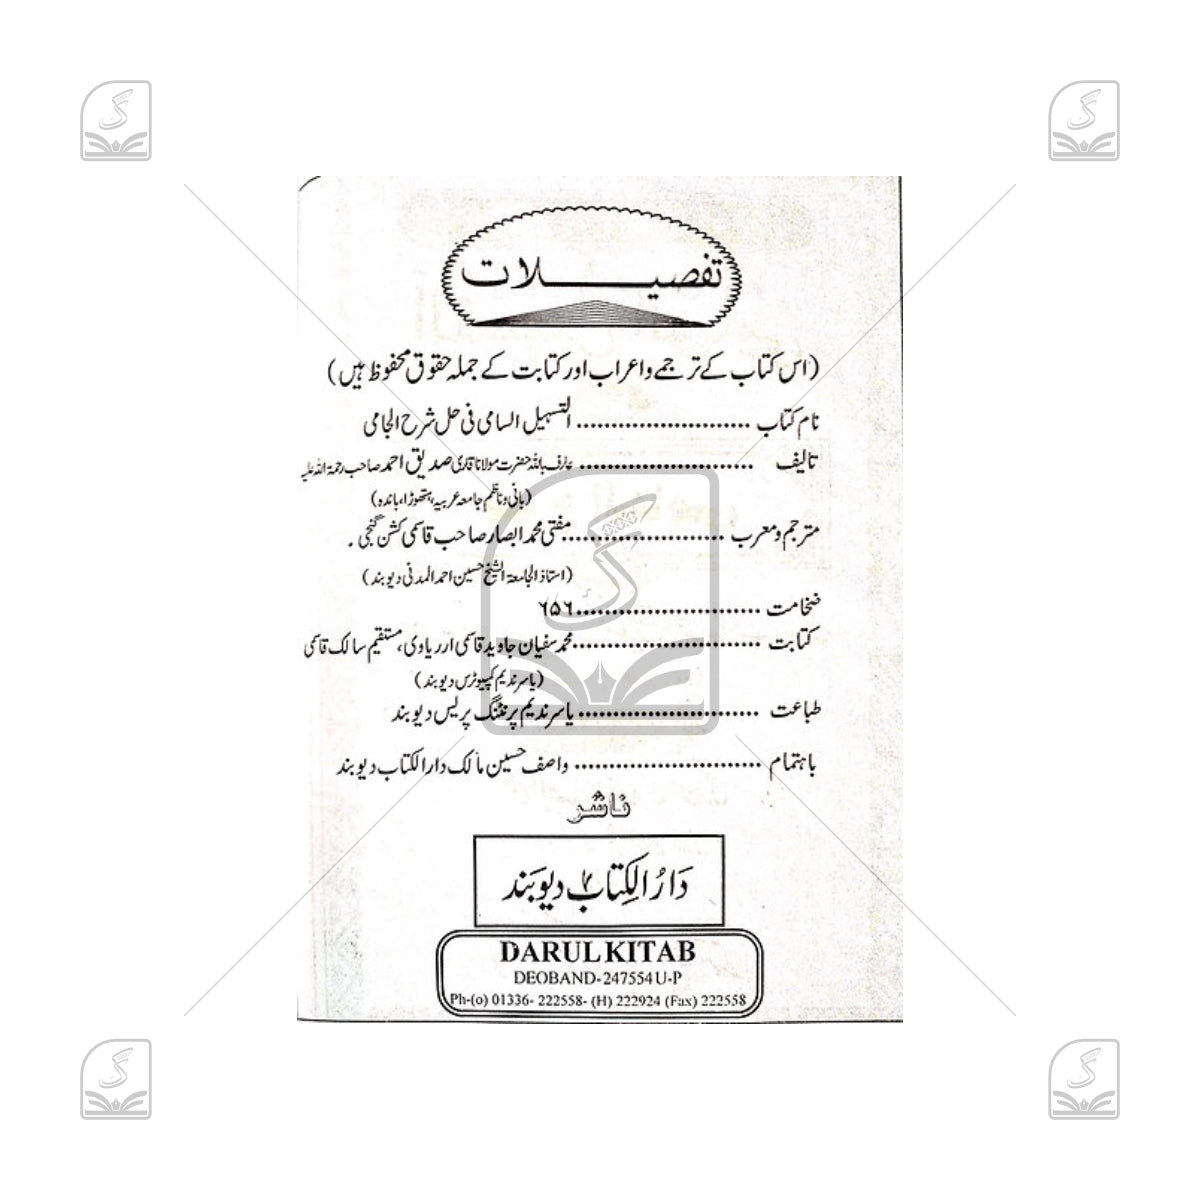 تفصیلات
(اس کتاب کے ترجمے و اعراب اور کتابت کے جملہ حقوق محفوظ ہیں)
نام کتاب ......................... التسہیل السامی فی حل شرح الجامی
تالیف ......................... عارف باللہ حضرت مولانا قاری صدیق احمد صاحب رحمۃ اللہ علیہ
(بانی و ناظم جامعہ عربیہ، ہتھوڑا، باندہ)
مترجم و معرب ......................... مفتی محمد ابصار صاحب قاسمی کشن گنجی .
(استاذ الجامعۃ الشیخ حسین احمد المدنی دیوبند)
ضخامت ......................... ۶۵۶
کتابت ......................... محمد سفیان جاوید قاسمی ارریاوی، مستقیم سالک قاسمی
(یاسر ندیم کمپیوٹرس دیوبند)
طباعت ......................... یاسر ندیم پرنٹنگ پریس دیوبند
باہتمام ......................... واصف حسین مالک دارالکتاب دیوبند
ناشر
دَارُ الکِتَاب دیوبَند
DARUL KITAB
DEOBAND-247554 U-P
Ph-(o) 01336- 222558- (H) 222924 (Fax) 222558